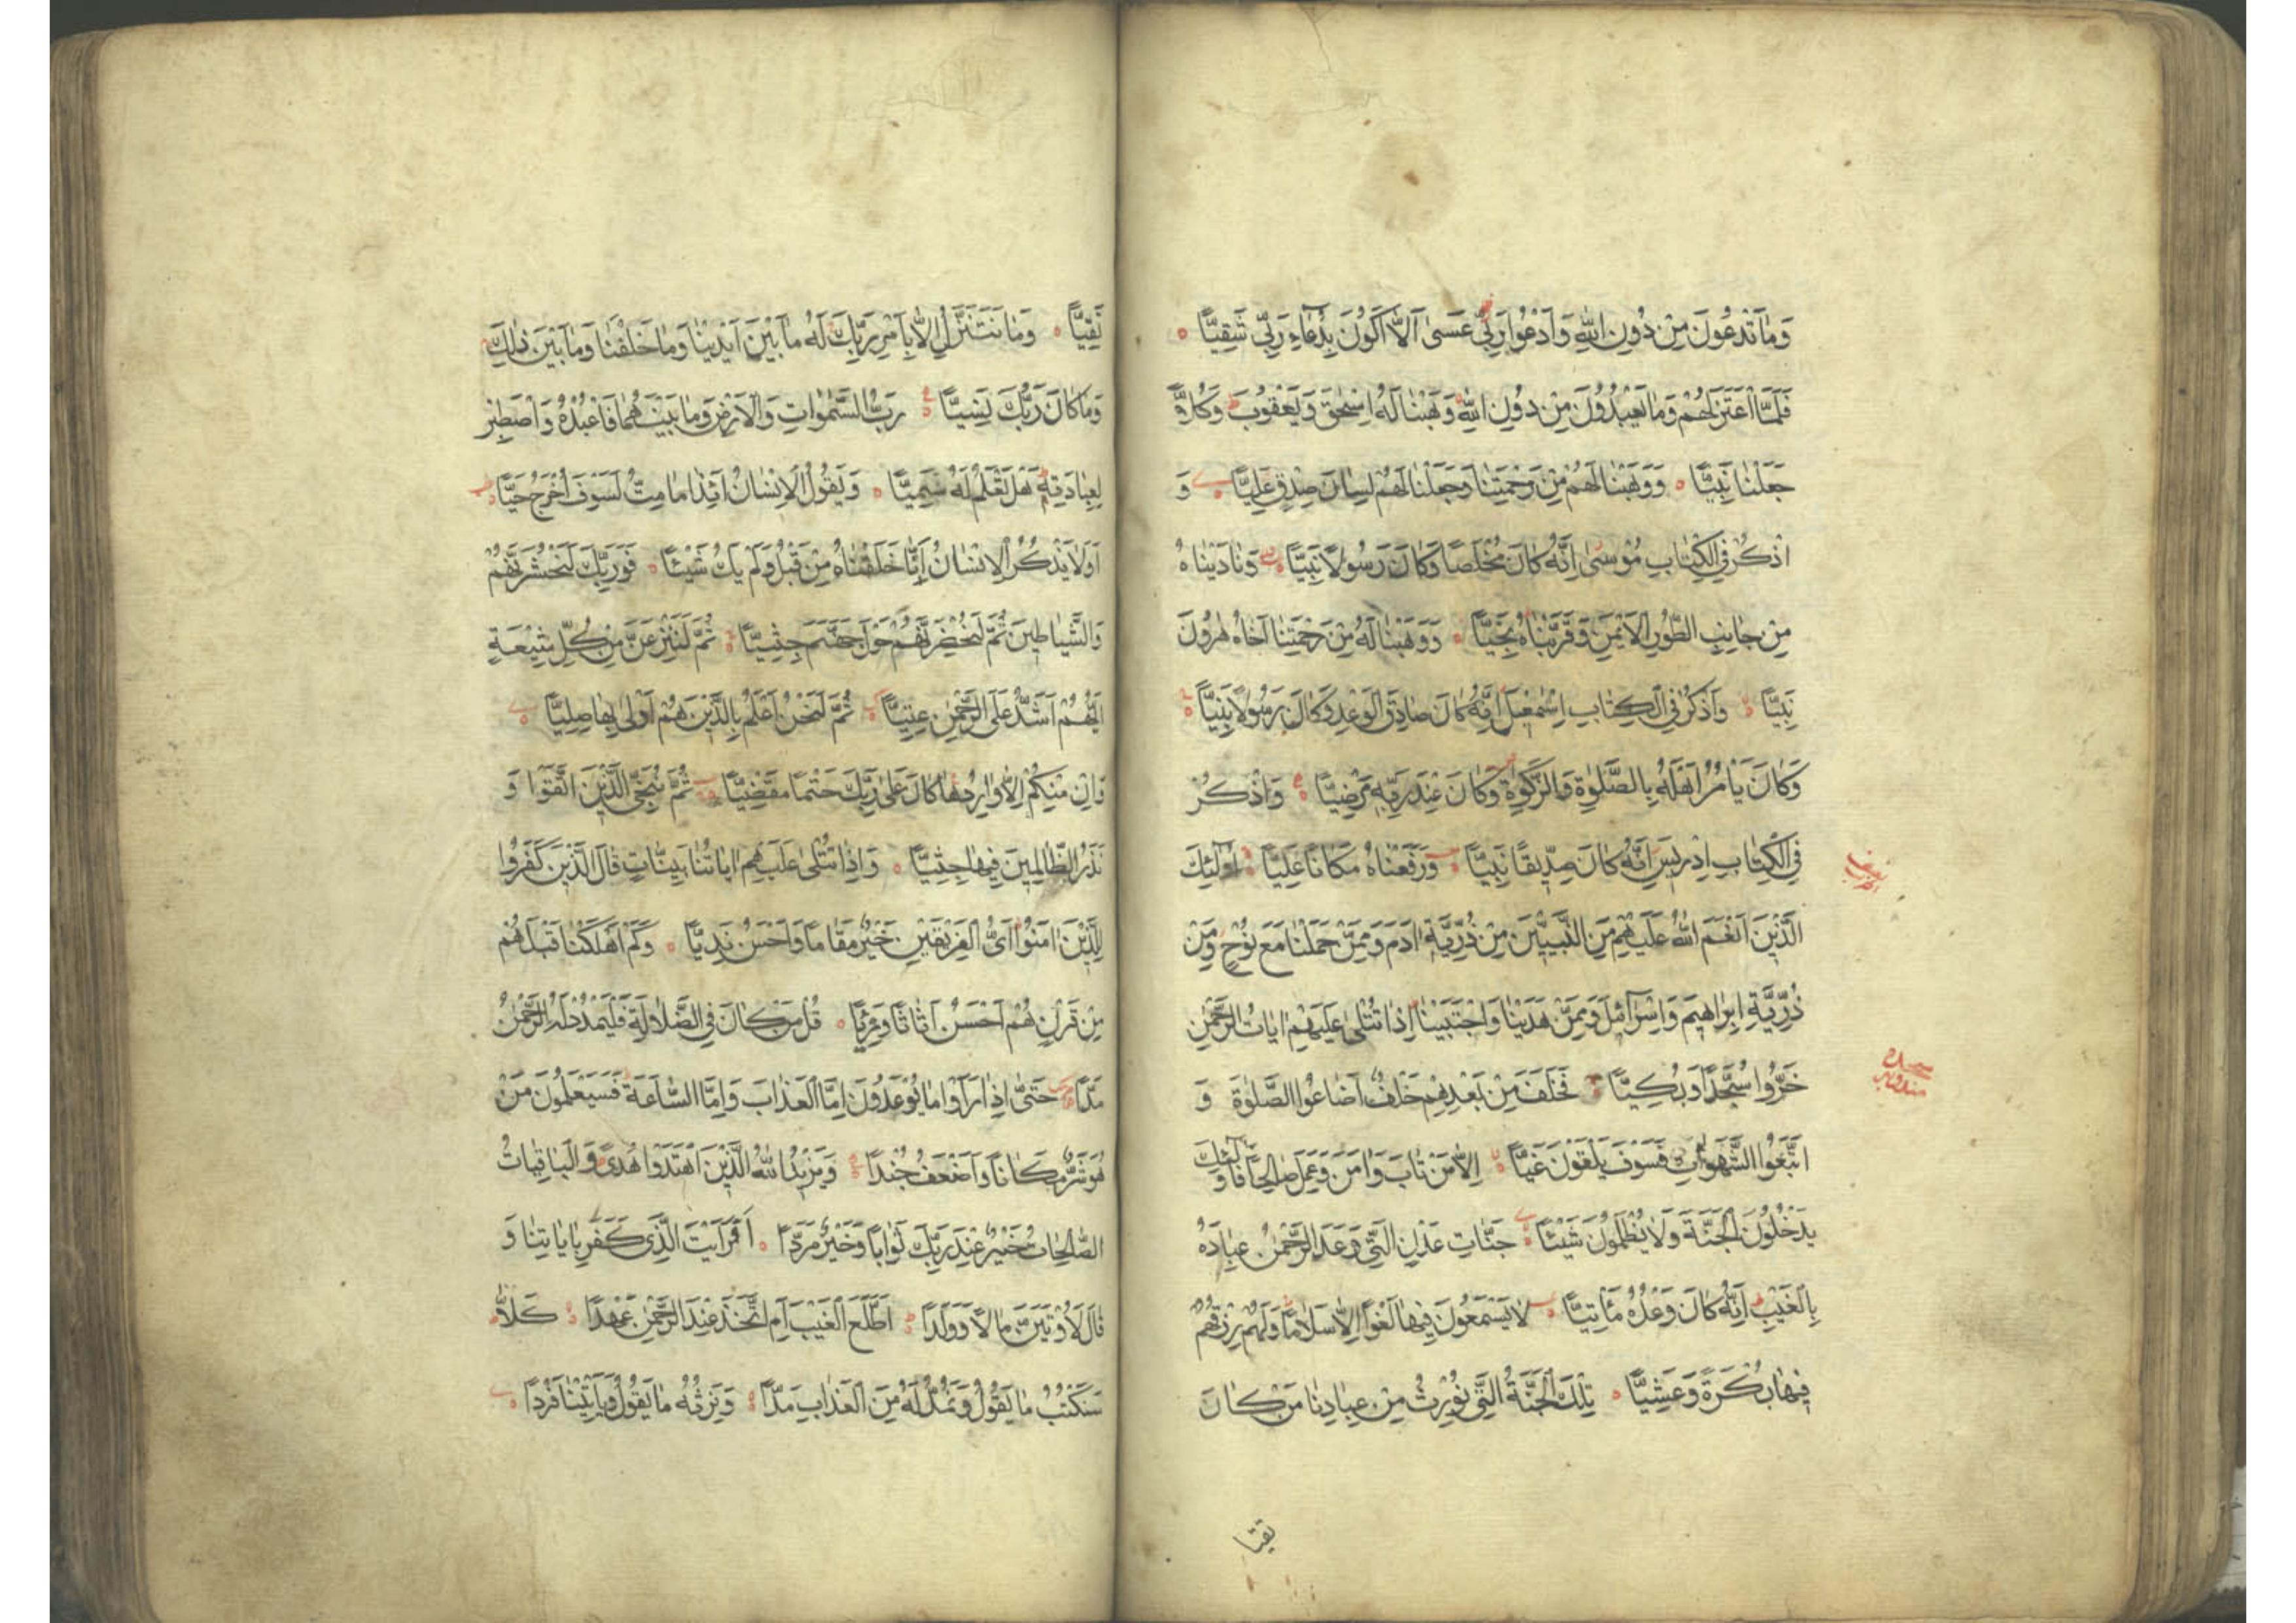 وَمَا تَدْعُونَ مِنْ دُونِ اللّٰهِ وَاَدْعُوا رَبّٖي عَسٰى اَلَّا اَكُونَ بِدُعَاءِ رَبّٖي شَقِيًّا
فَلَمَّا اعْتَزَلَهُمْ وَمَا يَعْبُدُونَ مِنْ دُونِ اللّٰهِ وَهَبْنَا لَهُ اِسْحٰقَ وَيَعْقُوبَ وَكُلًّا
جَعَلْنَا نَبِيًّا وَوَهَبْنَا لَهُمْ مِنْ رَحْمَتِنَا وَجَعَلْنَا لَهُمْ لِسَانَ صِدْقٍ عَلِيًّا وَ
اذْكُرْ فِي الْكِتَابِ مُوسٰى اِنَّهُ كَانَ مُخْلَصًا وَكَانَ رَسُولًا نَبِيًّا وَنَادَيْنَاهُ
مِنْ جَانِبِ الطُّورِ الْاَيْمَنِ وَقَرَّبْنَاهُ نَجِيًّا وَوَهَبْنَا لَهُ مِنْ رَحْمَتِنَا اَخَاهُ هٰرُونَ
نَبِيًّا وَاذْكُرْ فِي الْكِتَابِ اِسْمٰعٖيلَ اِنَّهُ كَانَ صَادِقَ الْوَعْدِ وَكَانَ رَسُولًا نَبِيًّا
وَكَانَ يَاْمُرُ اَهْلَهُ بِالصَّلٰوةِ وَالزَّكٰوةِ وَكَانَ عِنْدَ رَبِّهٖ مَرْضِيًّا وَاذْكُرْ
فِي الْكِتَابِ اِدْرٖيسَ اِنَّهُ كَانَ صِدّٖيقًا نَبِيًّا وَرَفَعْنَاهُ مَكَانًا عَلِيًّا اُولٰئِكَ
الَّذٖينَ اَنْعَمَ اللّٰهُ عَلَيْهِمْ مِنَ النَّبِيّٖينَ مِنْ ذُرِّيَّةِ اٰدَمَ وَمِمَّنْ حَمَلْنَا مَعَ نُوحٍ وَمِنْ
ذُرِّيَّةِ اِبْرٰهٖيمَ وَاِسْرَآئٖلَ وَمِمَّنْ هَدَيْنَا وَاجْتَبَيْنَا اِذَا تُتْلٰى عَلَيْهِمْ اٰيَاتُ الرَّحْمٰنِ
خَرُّوا سُجَّدًا وَبُكِيًّا فَخَلَفَ مِنْ بَعْدِهِمْ خَلْفٌ اَضَاعُوا الصَّلٰوةَ وَ
سجده
اتَّبَعُوا الشَّهَوَاتِ فَسَوْفَ يَلْقَوْنَ غَيًّا اِلَّا مَنْ تَابَ وَاٰمَنَ وَعَمِلَ صَالِحًا فَاُولٰئِكَ
يَدْخُلُونَ الْجَنَّةَ وَلَا يُظْلَمُونَ شَيْئًا جَنَّاتِ عَدْنٍ الَّتٖي وَعَدَ الرَّحْمٰنُ عِبَادَهُ
بِالْغَيْبِ اِنَّهُ كَانَ وَعْدُهُ مَاْتِيًّا لَا يَسْمَعُونَ فٖيهَا لَغْوًا اِلَّا سَلَامًا وَلَهُمْ رِزْقُهُمْ
فٖيهَا بُكْرَةً وَعَشِيًّا تِلْكَ الْجَنَّةُ الَّتٖي نُورِثُ مِنْ عِبَادِنَا مَنْ كَانَ
تقيا
تَقِيًّا وَمَا نَتَنَزَّلُ اِلَّا بِاَمْرِ رَبِّكَ لَهُ مَا بَيْنَ اَيْدٖينَا وَمَا خَلْفَنَا وَمَا بَيْنَ ذٰلِكَ
وَمَا كَانَ رَبُّكَ نَسِيًّا رَبُّ السَّمٰوَاتِ وَالْاَرْضِ وَمَا بَيْنَهُمَا فَاعْبُدْهُ وَاصْطَبِرْ
لِعِبَادَتِهٖ هَلْ تَعْلَمُ لَهُ سَمِيًّا وَيَقُولُ الْاِنْسَانُ ءَاِذَا مَا مِتُّ لَسَوْفَ اُخْرَجُ حَيًّا
اَوَلَا يَذْكُرُ الْاِنْسَانُ اَنَّا خَلَقْنَاهُ مِنْ قَبْلُ وَلَمْ يَكُ شَيْئًا فَوَرَبِّكَ لَنَحْشُرَنَّهُمْ
وَالشَّيَاطٖينَ ثُمَّ لَنُحْضِرَنَّهُمْ حَوْلَ جَهَنَّمَ جِثِيًّا ثُمَّ لَنَنْزِعَنَّ مِنْ كُلِّ شٖيعَةٍ
اَيُّهُمْ اَشَدُّ عَلَى الرَّحْمٰنِ عِتِيًّا ثُمَّ لَنَحْنُ اَعْلَمُ بِالَّذٖينَ هُمْ اَوْلٰى بِهَا صِلِيًّا
وَاِنْ مِنْكُمْ اِلَّا وَارِدُهَا كَانَ عَلٰى رَبِّكَ حَتْمًا مَقْضِيًّا ثُمَّ نُنَجِّي الَّذٖينَ اتَّقَوْا وَ
نَذَرُ الظَّالِمٖينَ فٖيهَا جِثِيًّا وَاِذَا تُتْلٰى عَلَيْهِمْ اٰيَاتُنَا بَيِّنَاتٍ قَالَ الَّذٖينَ كَفَرُوا
لِلَّذٖينَ اٰمَنُوا اَيُّ الْفَرٖيقَيْنِ خَيْرٌ مَقَامًا وَاَحْسَنُ نَدِيًّا وَكَمْ اَهْلَكْنَا قَبْلَهُمْ
مِنْ قَرْنٍ هُمْ اَحْسَنُ اَثَاثًا وَرِءْيًا قُلْ مَنْ كَانَ فِي الضَّلَالَةِ فَلْيَمْدُدْ لَهُ الرَّحْمٰنُ
مَدًّا حَتّٰى اِذَا رَاَوْا مَا يُوعَدُونَ اِمَّا الْعَذَابَ وَاِمَّا السَّاعَةَ فَسَيَعْلَمُونَ مَنْ
هُوَ شَرٌّ مَكَانًا وَاَضْعَفُ جُنْدًا وَيَزٖيدُ اللّٰهُ الَّذٖينَ اهْتَدَوْا هُدًى وَالْبَاقِيَاتُ
الصَّالِحَاتُ خَيْرٌ عِنْدَ رَبِّكَ ثَوَابًا وَخَيْرٌ مَرَدًّا اَفَرَاَيْتَ الَّذٖي كَفَرَ بِاٰيَاتِنَا وَ
قَالَ لَاُوتَيَنَّ مَالًا وَوَلَدًا اَطَّلَعَ الْغَيْبَ اَمِ اتَّخَذَ عِنْدَ الرَّحْمٰنِ عَهْدًا كَلَّا
سَنَكْتُبُ مَا يَقُولُ وَنَمُدُّ لَهُ مِنَ الْعَذَابِ مَدًّا وَنَرِثُهُ مَا يَقُولُ وَيَاْتٖينَا فَرْدًا